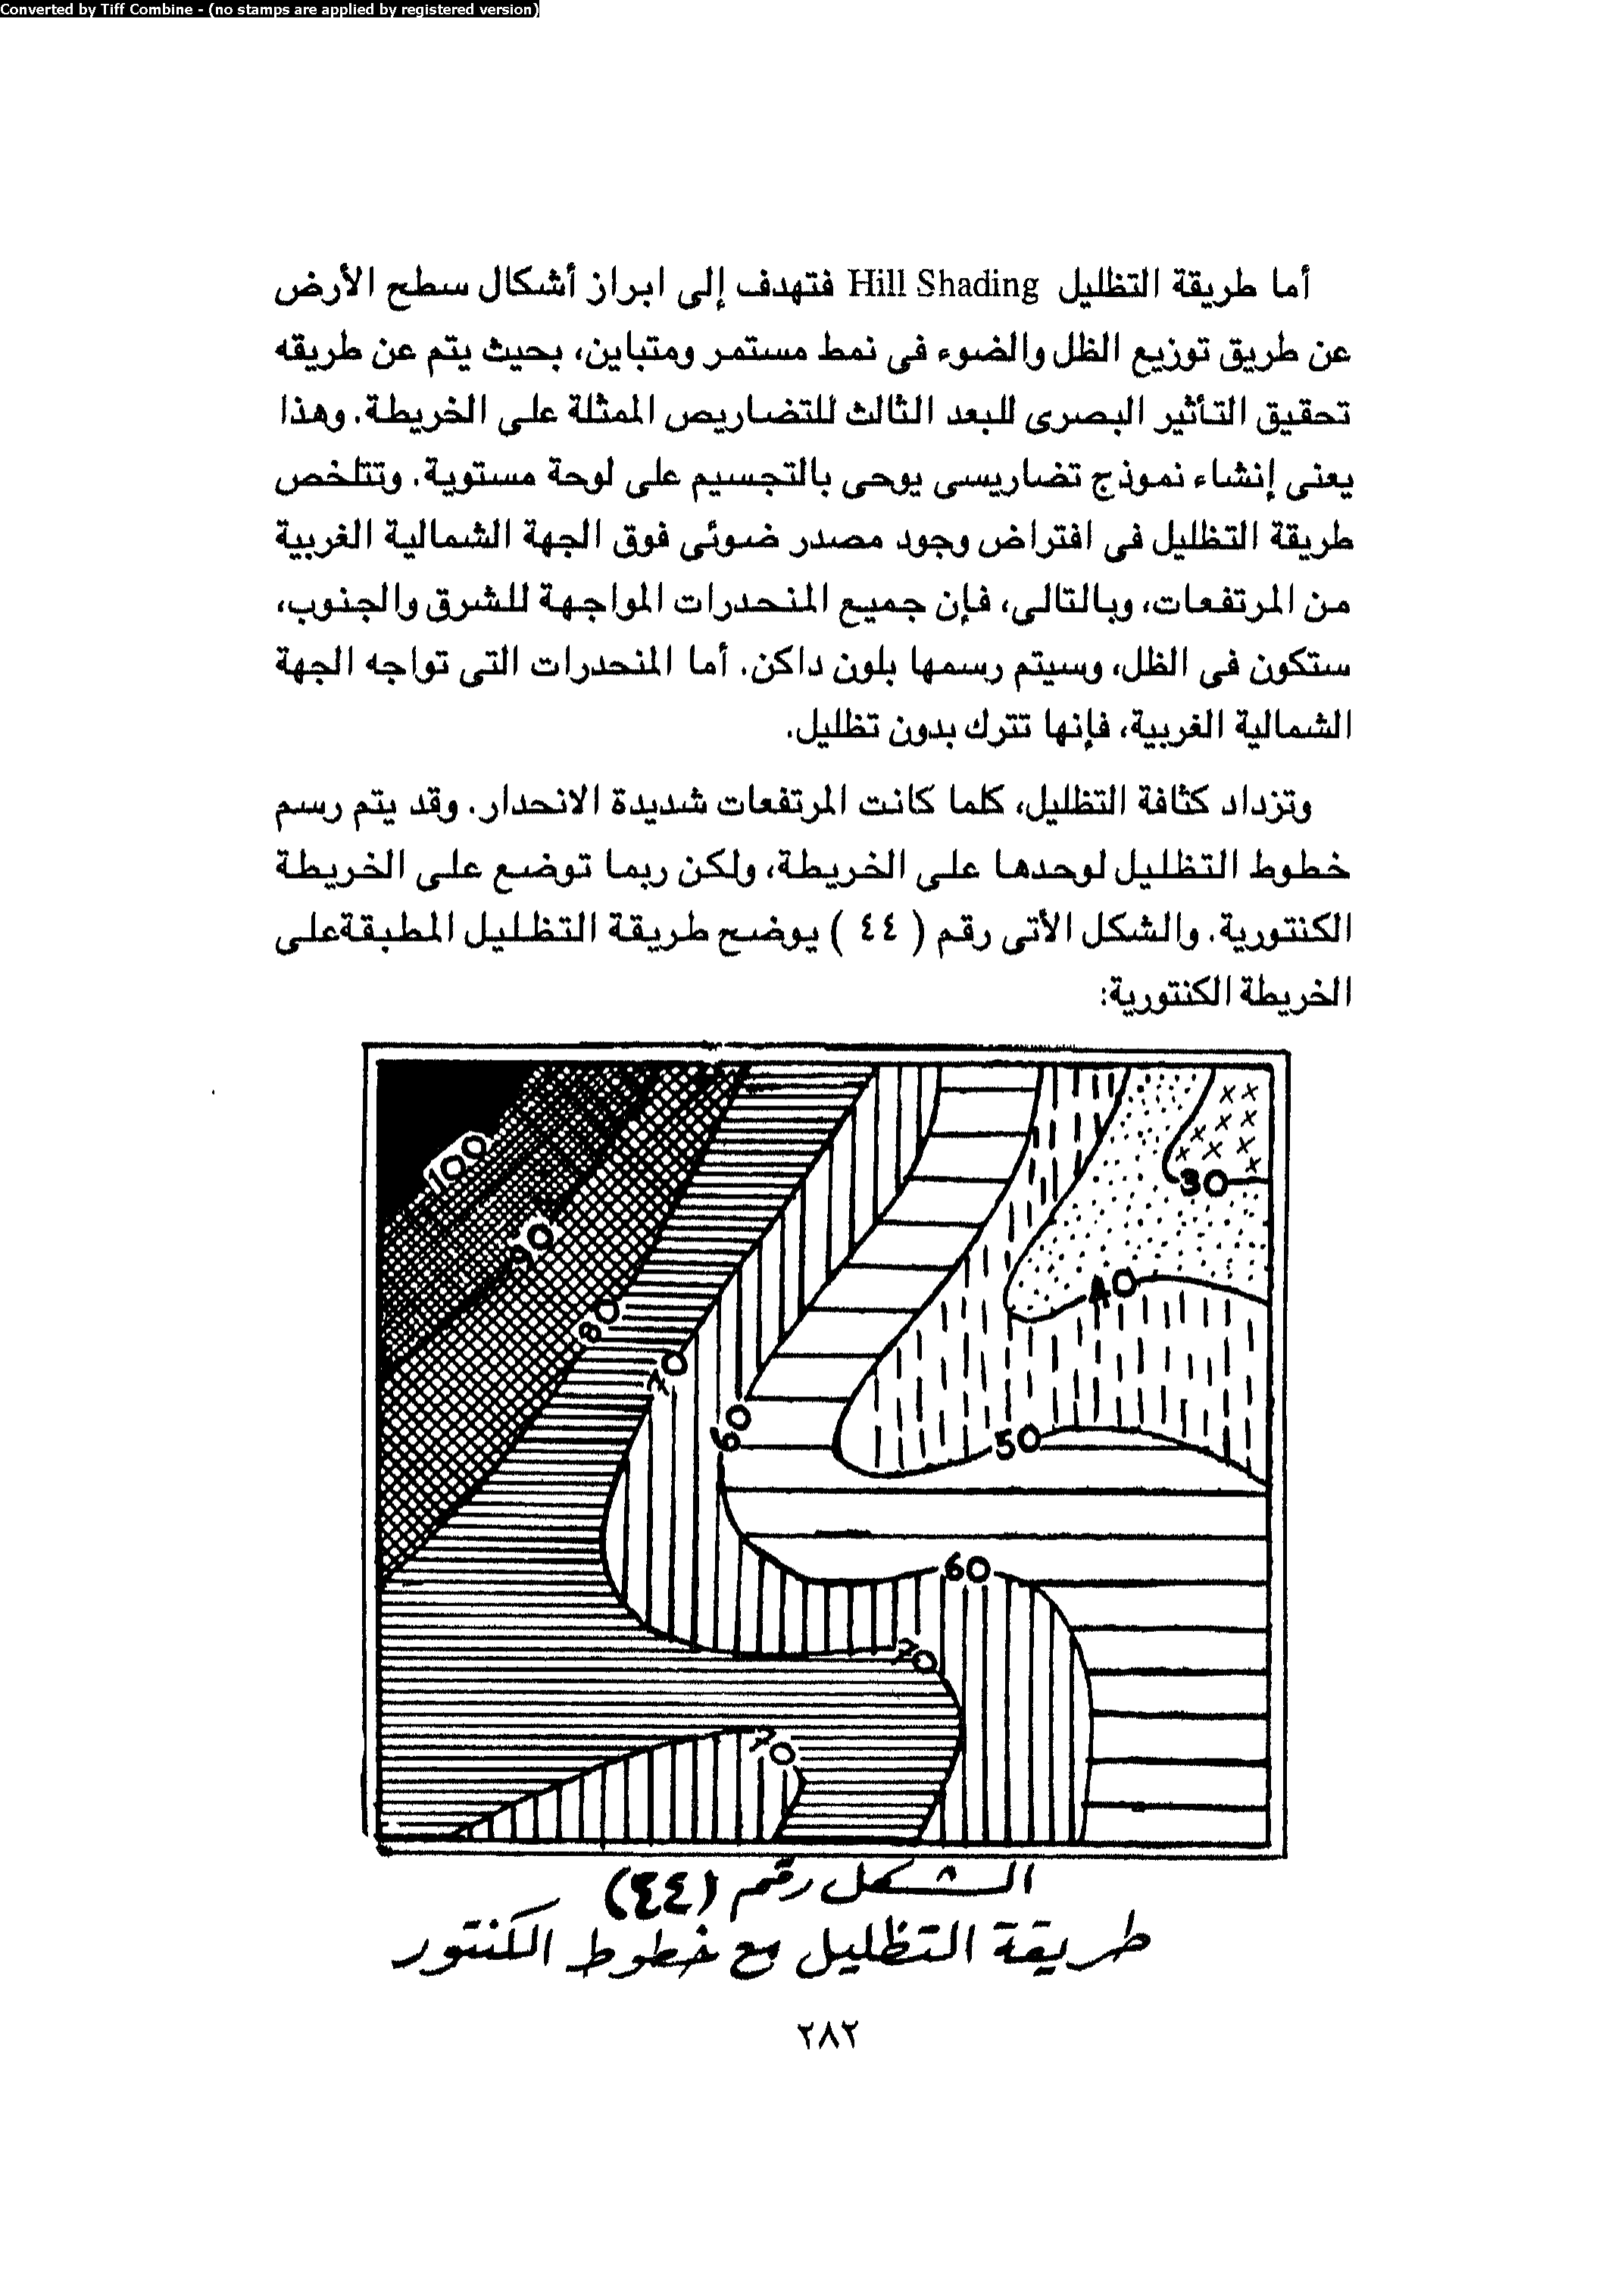 Converted by Tiff Combine - (no stamps are applied by registered version)
أما طريقة التظليل Hill Shading فتهدف إلى ابراز أشكال سطح الأرض
عن طريق توزيع الظل والضوء فى نمط مستمر ومتباين، بحيث يتم عن طريقه
تحقيق التأثير البصرى للبعد الثالث للتضاريص الممثلة على الخريطة. وهذا
يعنى إنشاء نموذج تضاريسى يوحى بالتجسيم على لوحة مستوية. وتتلخص
طريقة التظليل فى افتراض وجود مصدر ضوئى فوق الجهة الشمالية الغربية
من المرتفعات، وبالتالى، فإن جميع المنحدرات المواجهة للشرق والجنوب،
ستكون فى الظل، وسيتم رسمها بلون داكن. أما المنحدرات التى تواجه الجهة
الشمالية الغربية، فإنها تترك بدون تظليل.
وتزداد كثافة التظليل، كلما كانت المرتفعات شديدة الانحدار. وقد يتم رسم
خطوط التظليل لوحدها على الخريطة، ولكن ربما توضع على الخريطة
الكنتورية. والشكل الأتى رقم ( ٤٤ ) يوضح طريقة التظليل المطبقةعلى
الخريطة الكنتورية:
100
90
80
70
60
50
40
30
60
70
70
الشكل رقم (٤٤)
طريقة التظليل مع خطوط الكنتور
٢٨٢